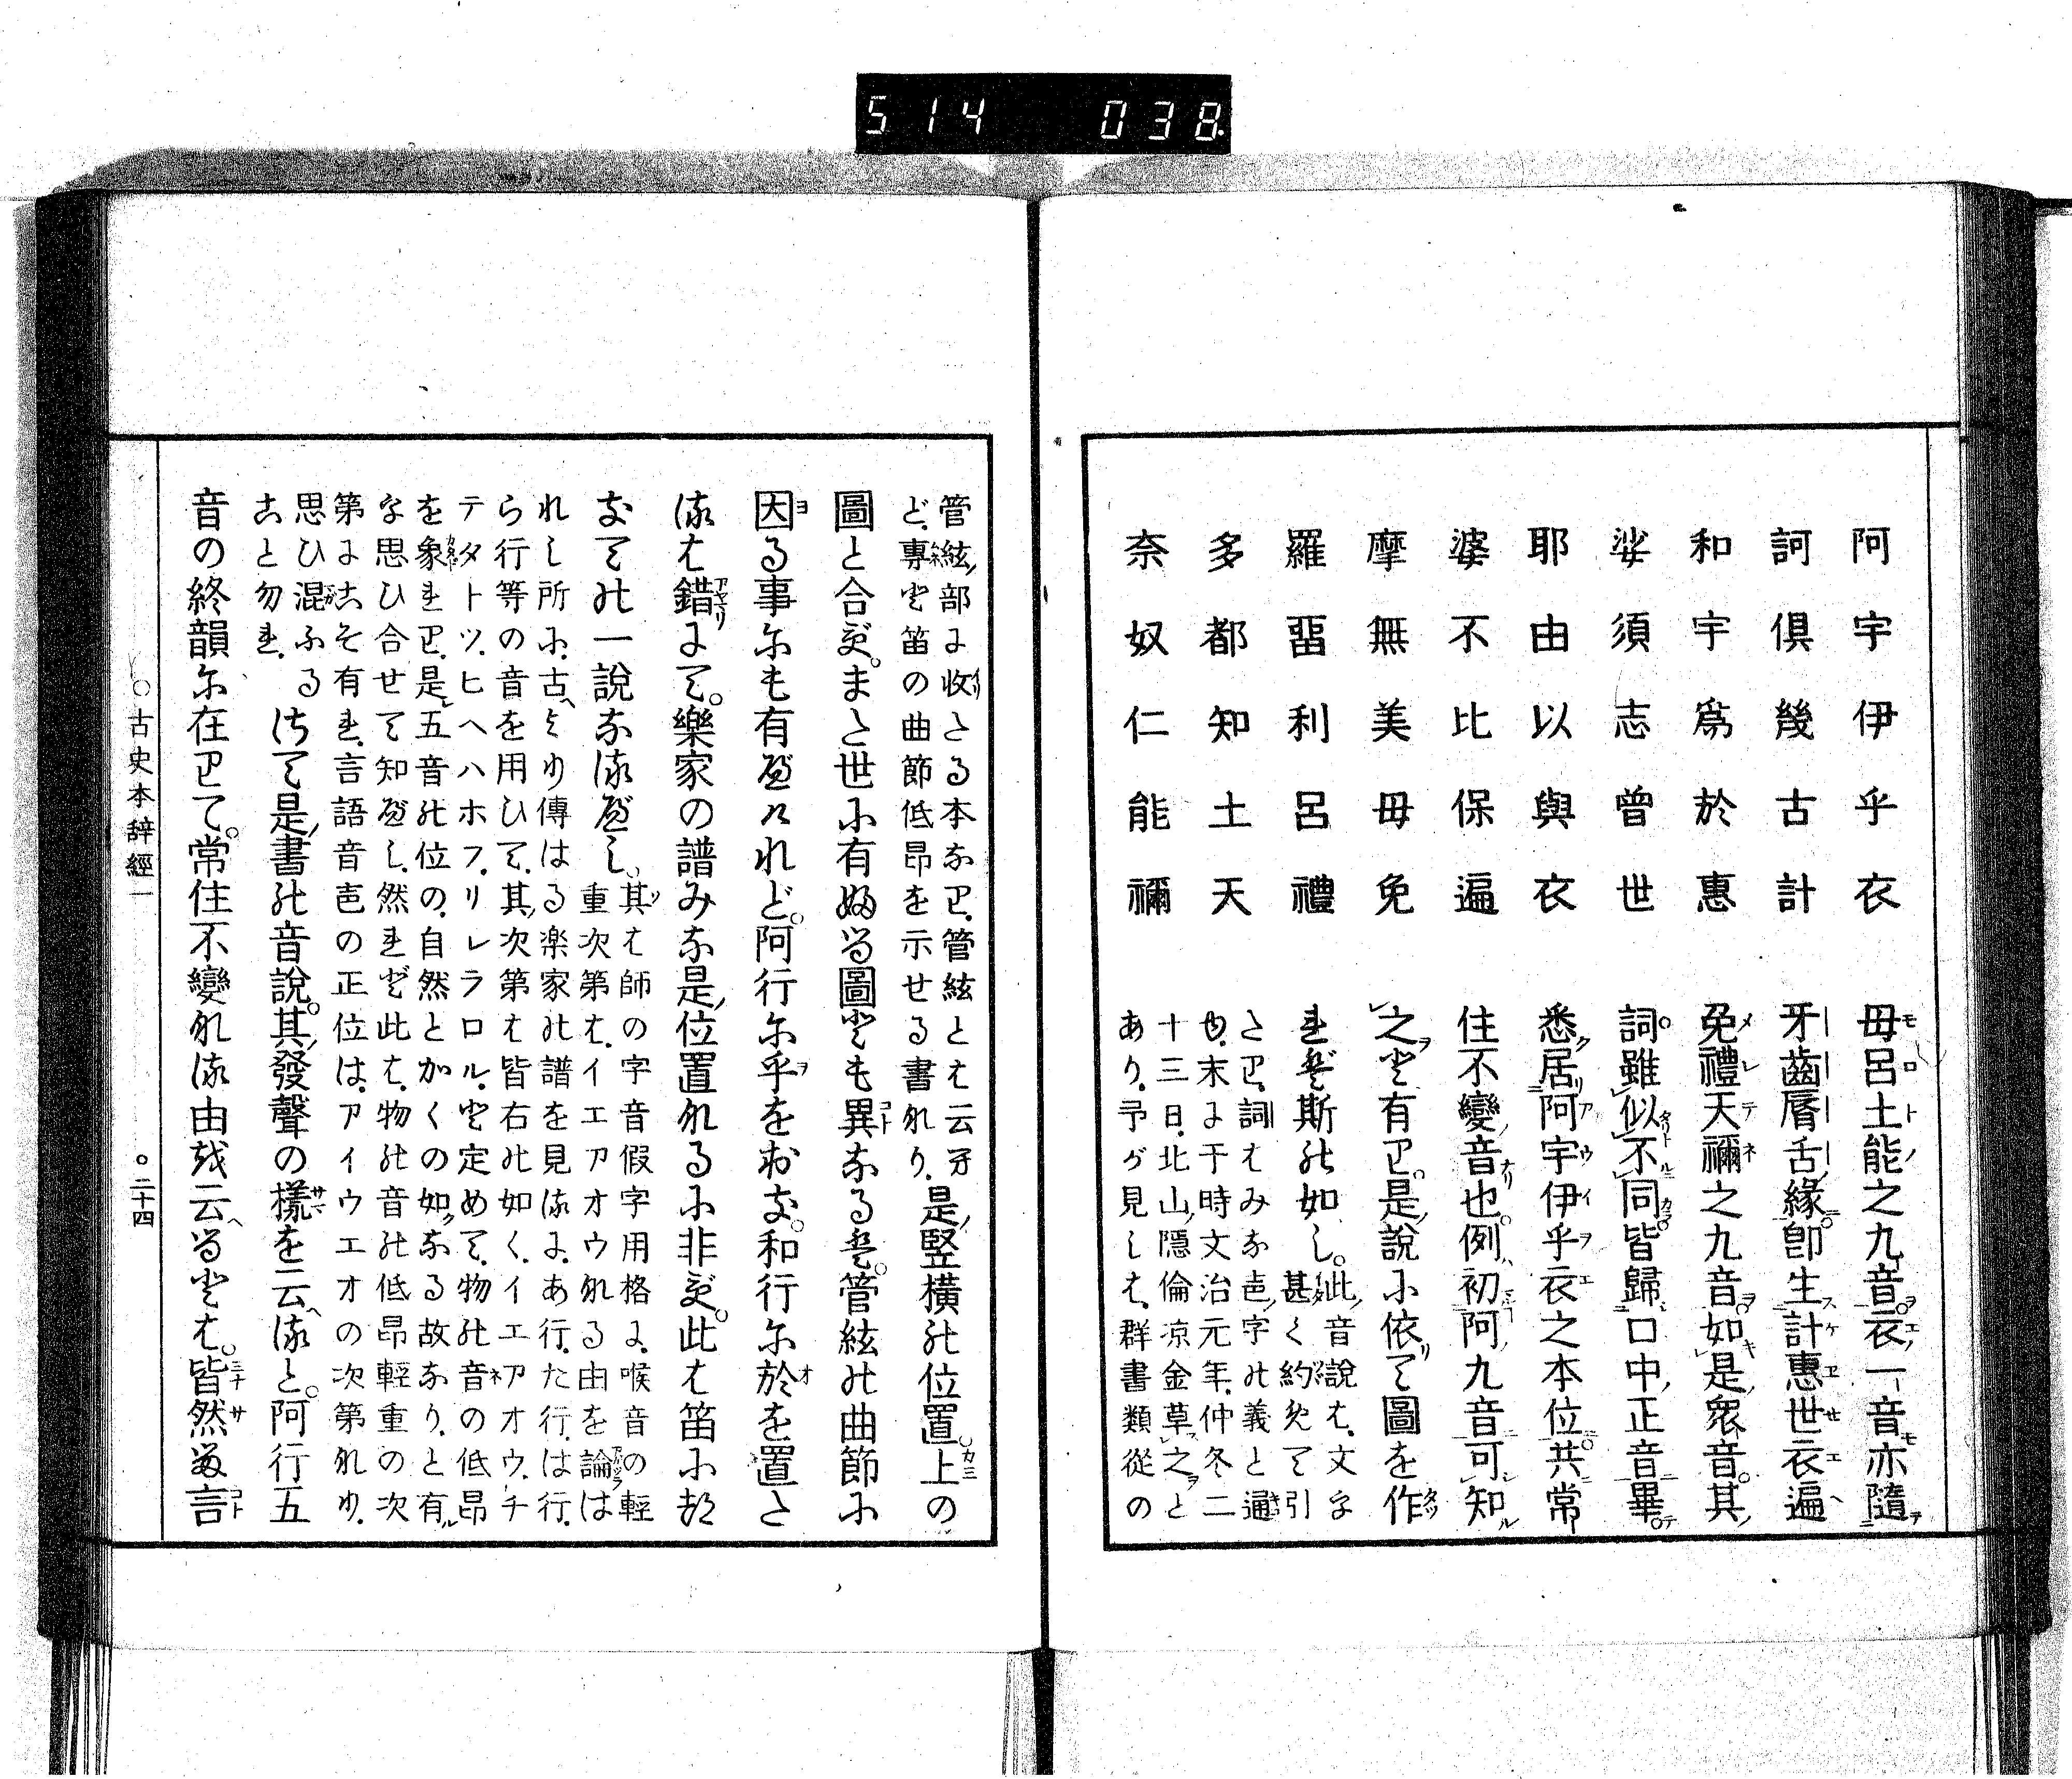 514 038
阿宇伊乎衣 毋呂土能之九音衣一音亦隨
訶倶幾古計 牙齒脣舌緣卽生計惠世衣遍
和宇爲於惠 免禮天禰之九音如是衆音其
娑須志曾世 詞雖似不同皆歸口中正音畢
耶由以與衣 悉居阿宇伊乎衣之本位共常
婆不比保遍 住不變音也例初阿九音可知
摩無美毋免 之と有り是說に依て圖を作
羅畱利呂禮 れば斯の如し。此音說は文字
甚く約めて引
多都知土天 たり、詞はみな邑字の義と通
也、末に于時文治元年仲冬二
奈奴仁能禰 十三日北山隱倫凉金草之と
あり、予が見しは、群書類從の
管絃部に收たる本なり、管絃とは云
ど、專と笛の曲節低昂を示せる書なり、
是竪橫の位置上の
圖と合ず。また世に有ゆる圖とも異なるは。管絃の曲節に
因る事にも有べけれど。阿行に乎をおき。和行に於を置た
るは錯にて。樂家の譜みな是位置なるに非ず。此は笛に
なての一說なるべし。其は師の字音假字用格に、喉音の輕
重次第は、イエアオウなる由を論は
れし所に、古へより傳はる楽家の譜を見るに、あ行た行は行
ら行等の音を用ひて、其次第は皆右の如く、イエアオウ、チ
テタトツ、ヒヘハホフ、リレラロル、と定めて、物の音の低昂
を象れり、是五音の位の自然とかくの如なる故なり、と有
な思ひ合せて知べし、然れど此は、物の音の低昂輕重の次
第にこそ有れ、言語音邑の正位は、アイウエオの次第なり、
思ひ混ふる
こと勿れ、
さて是書の音說。其發聲の樣を云へると。阿行五
音の終韻に在りて。常住不變なる由を云へるとは。皆然る言
○古史本辭經一 ○二十四